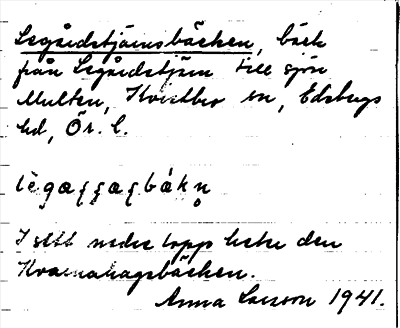 Legårdstjärnsbäcken, bäck
från Legårdstjärn till sjön
Multen, Kvistbro sn, Edsbergs
hd, Ör. l.
I sitt nedre lopp heter den
Kvarnahagsbäcken.
Anna Larsson 1941.